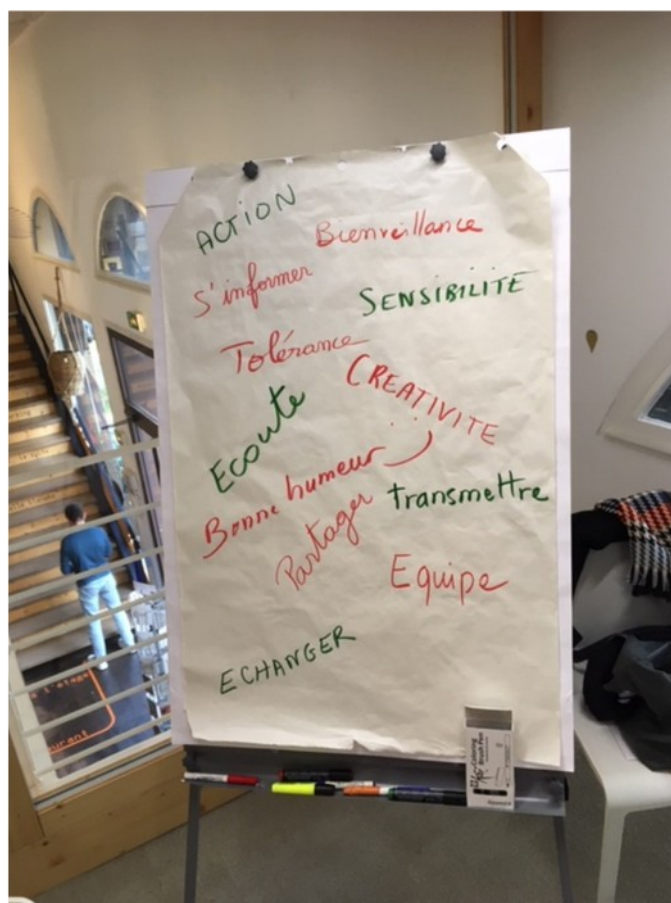 ACTION
Bienveillance
S'informer
SENSIBILITÉ
Tolérance
CREATIVITE
Ecoute
Bonne humeur
transmettre
Partager
Equipe
ECHANGER
Coloring
Brush Pen